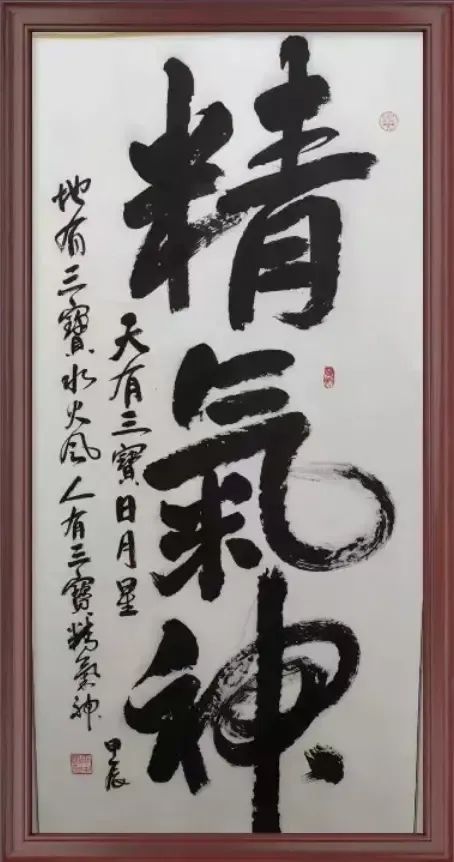 精氣神
天有三寶日月星
地有三寶水火风人有三寶精氣神
甲辰